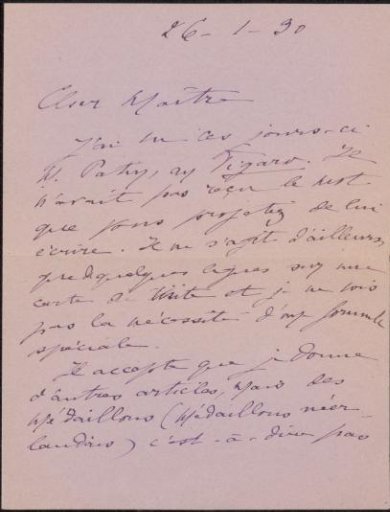 26 - 1 - 30
Cher Maître
J'ai vu ces jours-ci
M. Pathy, au Figaro. Il
n'avait pas reçu le mot
que vous projetiez de lui
écrire. Il ne s'agit d'ailleurs
que de quelques lignes sur une
carte de visite et je ne vois
pas la nécessité d'une formule
spéciale.
Il accepte que je donne
d'autres articles, mais des
Médaillons (Médaillons néer-
landais) c'est-à-dire pas